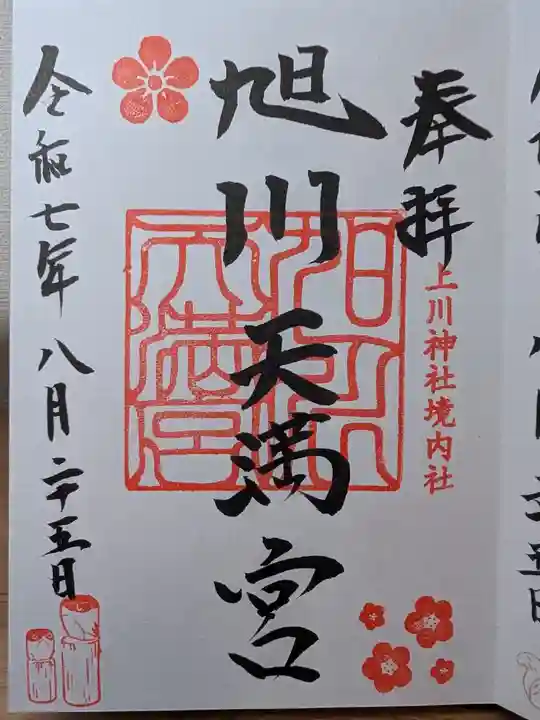 奉拝
上川神社境内社
旭川天満宮
令和七年 八月二十五日